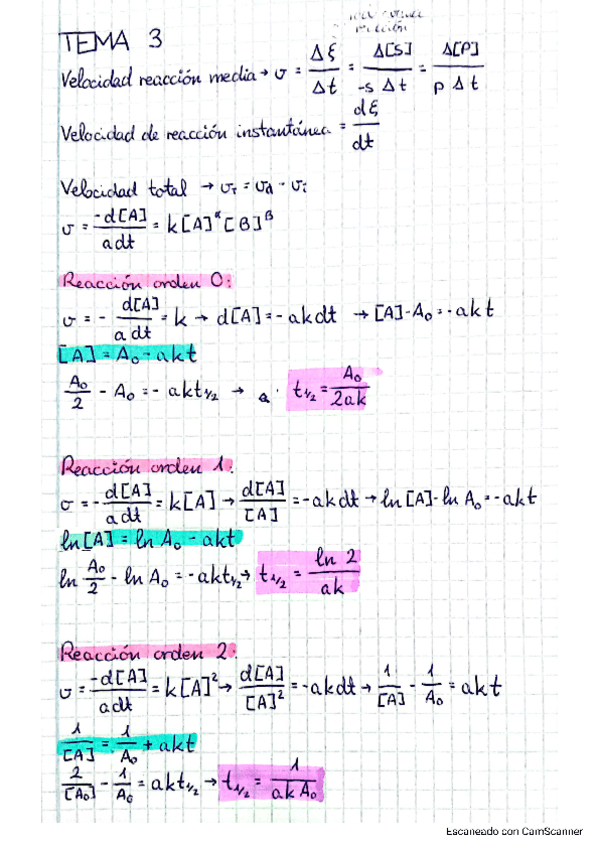 TEMA 3
Velocidad reacción media → v = Δξ/Δt = Δ[S]/-s Δt = Δ[P]/p Δt
Velocidad de reacción instantánea = dξ/dt
Velocidad total → vT = vd - vi
v = -d[A]/adt = k[A]^α[B]^β
Reacción orden 0:
v = - d[A]/a dt = k → d[A] = - akdt → [A]-A₀ = -akt
[A] = A₀ - akt
A₀/2 - A₀ = - akt₁/₂ → t₁/₂ = A₀/2ak
Reacción orden 1:
v = - d[A]/adt = k[A] → d[A]/[A] = -akdt → ln[A]-ln A₀ = -akt
ln[A] = ln A₀ - akt
ln A₀/2 - ln A₀ = -akt₁/₂ → t₁/₂ = ln 2/ak
Reacción orden 2:
v = -d[A]/adt = k[A]² → d[A]/[A]² = -akdt → 1/[A] - 1/A₀ = akt
1/[A] = 1/A₀ + akt
2/[A₀] - 1/A₀ = akt₁/₂ → t₁/₂ = 1/ak A₀
Escaneado con CamScanner